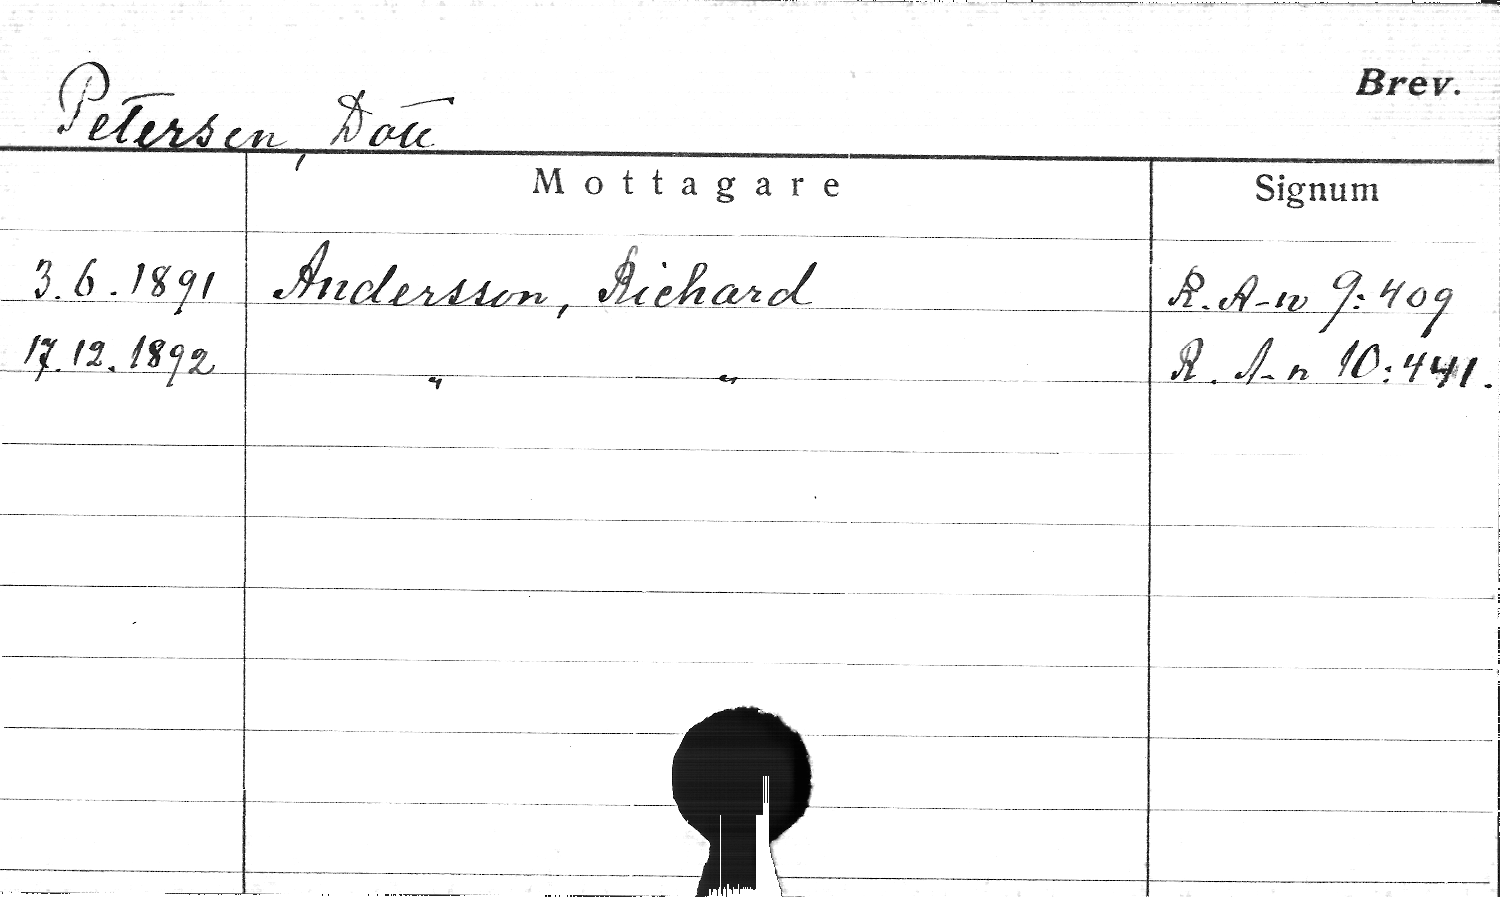 Brev.
Petersen, Dott
Mottagare Signum
3.6.1891 Andersson, Richard R. A-n 9:409
17.12.1892 " " R. A-n 10:441.